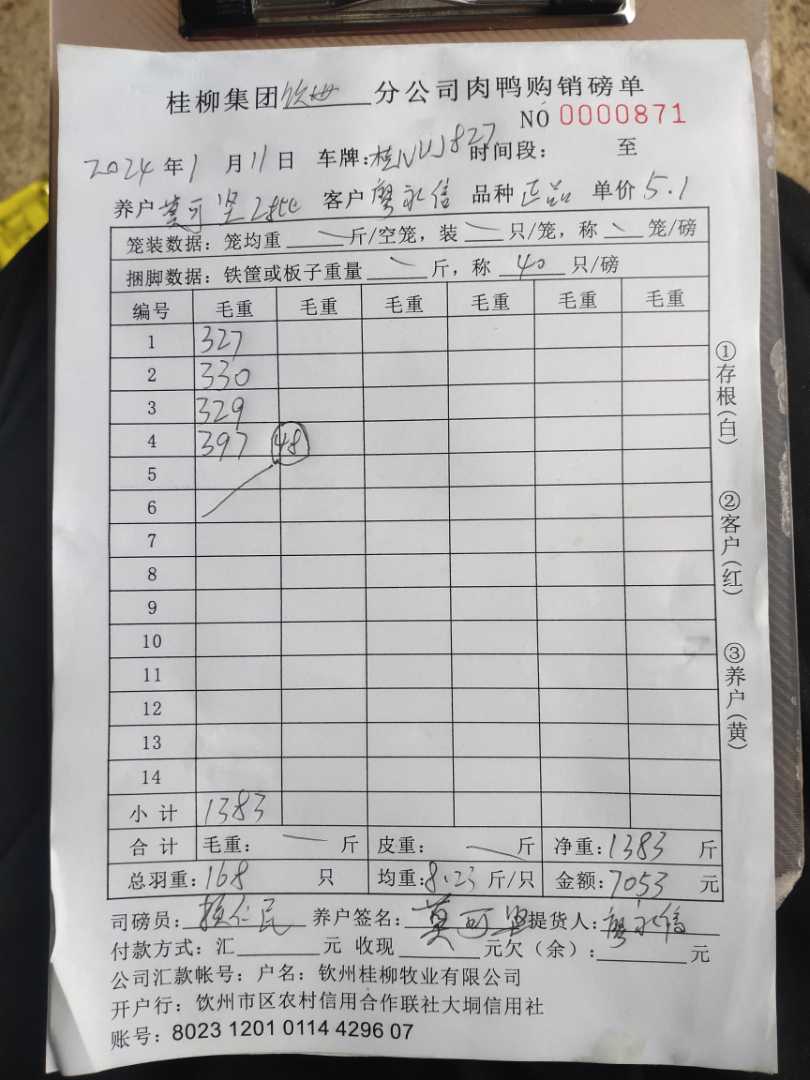 桂柳集团钦州分公司肉鸭购销磅单
NO 0000871
2024年1月11日 车牌:桂NUJ827 时间段: 至
养户莫可坚 客户廖永信 品种正品 单价5.1
笼装数据:笼均重 斤/空笼,装 只/笼,称 笼/磅
捆脚数据:铁筐或板子重量 斤,称 40 只/磅
编号 毛重 毛重 毛重 毛重 毛重 毛重
1 327
2 330
3 329
4 397 48
5
6
7
8
9
10
11
12
13
14
小计 1383
合计 毛重: 斤 皮重: 斤 净重:1383斤
总羽重:168 只 均重:8.23斤/只 金额:7053元
司磅员: 养户签名:莫可坚 提货人:廖永信
付款方式:汇 元 收现 元欠(余): 元
公司汇款帐号:户名:钦州桂柳牧业有限公司
开户行:钦州市区农村信用合作联社大垌信用社
账号:8023 1201 0114 4296 07
①存根(白)
②客户(红)
③养户(黄)